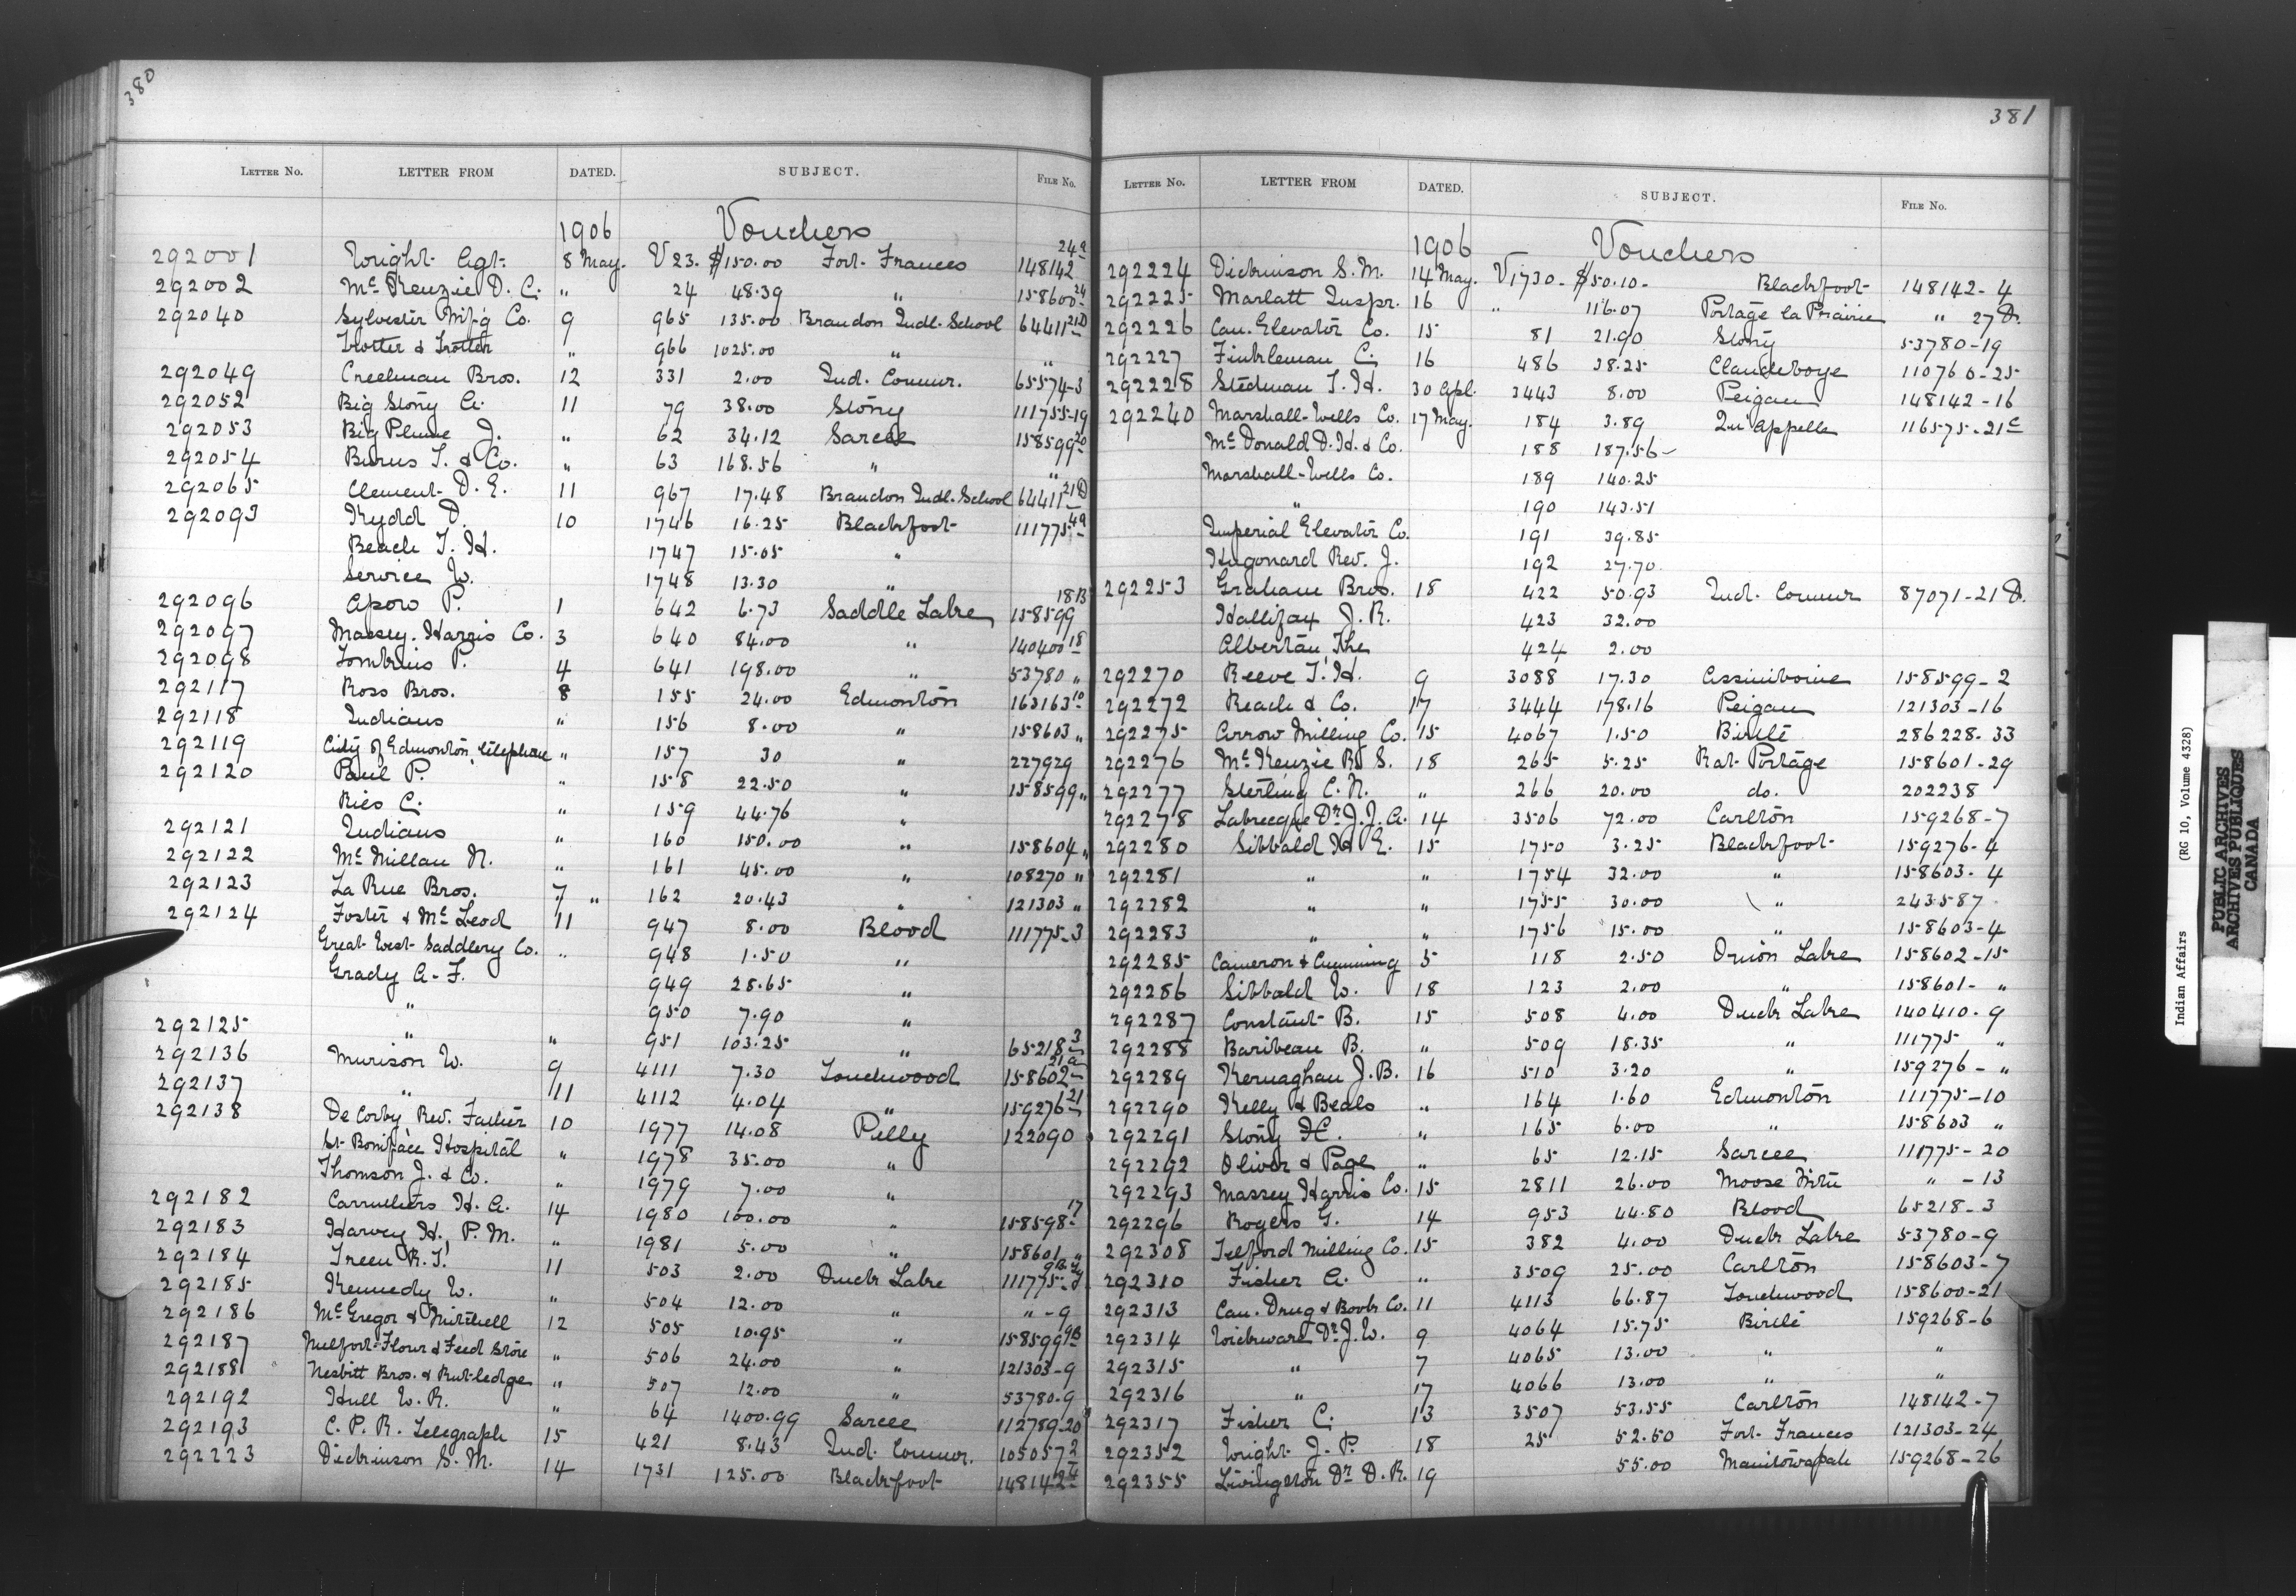 380
LETTER No. LETTER FROM DATED. SUBJECT. FILE No.
1906 Vouchers
292001 Wright Agt. 8 May. V 23. $150.00 Fort Frances 148142 24a
292002 McKenzie D. C. " 24 48.39 " 158600-24
292040 Sylvester Mf'g Co. 9 965 135.00 Brandon Indl. School 64411-21D
Trotter & Trotter " 966 1025.00 " "
292049 Creelman Bros. 12 331 2.00 Ind. Commr. 65574-3
292052 Big Stony A. 11 79 38.00 Stony 111755-19
292053 Big Plume J. " 62 34.12 Sarcee 158599-20
292054 Burns T. & Co. " 63 168.56 " "
292065 Clement D. E. 11 967 17.48 Brandon Indl. School 64411-21D
292093 Kydd D. 10 1746 16.25 Blackfoot 111775-4a
Beach T. H. 1747 15.05 "
Service W. 1748 13.30 "
292096 Apow P. 1 642 6.73 Saddle Lake 158599 18B
292097 Massey-Harris Co. 3 640 84.00 " 140400 18
292098 Tomkins P. 4 641 198.00 " 53780 "
292117 Ross Bros. 8 155 24.00 Edmonton 163163 10
292118 Indians " 156 8.00 " 158603 "
292119 City of Edmonton, telephone " 157 30 " 227929
292120 Paul P. " 158 22.50 " 158599 "
Ries C. " 159 44.76 "
292121 Indians " 160 150.00 " 158604 "
292122 McMillan N. " 161 45.00 " 108270 "
292123 La Rue Bros. 7 " 162 20.43 " 121303 "
292124 Foster & McLeod 11 947 8.00 Blood 111775-3
Great West Saddlery Co. " 948 1.50 "
Grady A. F. 949 28.65 "
" 950 7.90 "
292125 " " 951 103.25 " 65218-3
292136 Murison W. 9 4111 7.30 Touchwood 158602-21a
292137 " 11 4112 4.04 " 159276-21
292138 De Corby Rev. Father 10 1977 14.08 Pelly 122090
St. Boniface Hospital " 1978 35.00 "
Thomson J. & Co. " 1979 7.00 "
292182 Carruthers H. A. 14 1980 100.00 " 158598-17
292183 Harvey H. P. M. " 1981 5.00 " 158601 "
292184 Treen R. T. 11 503 2.00 Duck Lake 111775-
292185 Kennedy W. " 504 12.00 " " -9
292186 McGregor & Mitchell 12 505 10.95 " 158599-9B
292187 Melfort Flour & Feed Store " 506 24.00 " 121303-9
292188 Nesbitt Bros. & Rutledge " 507 12.00 " 53780-9
292192 Hull W. R. " 64 1400.99 Sarcee 112789-20
292193 C. P. R. Telegraph 15 421 8.43 Ind. Commr. 105057-2
292223 Dickinson S. M. 14 1731 125.00 Blackfoot 148142-4
381
LETTER No. LETTER FROM DATED. SUBJECT. FILE No.
1906 Vouchers
292224 Dickinson S. M. 14 May. V1730- $50.10- Blackfoot 148142-4
292225 Marlatt Inspr. 16 " 116.07 Portage la Prairie " 27D.
292226 Can. Elevator Co. 15 81 21.90 Stony 53780-19
292227 Finkleman C. 16 486 38.25 Clandeboye 110760-25
292228 Stedman T. H. 30 Apl. 3443 8.00 Peigan 148142-16
292240 Marshall-Wells Co. 17 May. 184 3.89 Qu'Appelle 116575-21c
McDonald D. H. & Co. 188 187.56
Marshall-Wells Co. 189 140.25
" 190 143.51
Imperial Elevator Co. 191 39.85
Hugonard Rev. J. 192 27.70
292253 Graham Bros. 18 422 50.93 Ind. Commr 87071-21D.
Hallifax J. R. 423 32.00
Albertan, The 424 2.00
292270 Reeve T. H. 9 3088 17.30 Assiniboine 158599-2
292272 Beach & Co. 17 3444 178.16 Peigan 121303-16
292275 Arrow Milling Co. 15 4067 1.50 Birtle 286228-33
292276 McKenzie R. S. 18 265 5.25 Rat Portage 158601-29
292277 Sterling C. N. " 266 20.00 do. 202238
292278 Labrecque Dr. J. J. A. 14 3506 72.00 Carlton 159268-7
292280 Sibbald H. E. 15 1750 3.25 Blackfoot 159276-4
292281 " " 1754 32.00 " 158603-4
292282 " " 1755 30.00 " 243587
292283 " " 1756 15.00 " 158603-4
292285 Cameron & Cumming 5 118 2.50 Onion Lake 158602-15
292286 Sibbald W. 18 123 2.00 " 158601- "
292287 Constant B. 15 508 4.00 Duck Lake 140410-9
292288 Baribeau B. " 509 18.35 " 111775 "
292289 Kernaghan J. B. 16 510 3.20 " 159276- "
292290 Kelly & Beals " 164 1.60 Edmonton 111775-10
292291 Stony H. " 165 6.00 " 158603 "
292292 Oliver & Page " 65 12.15 Sarcee 111775-20
292293 Massey Harris Co. 15 2811 26.00 Moose Mtn " -13
292296 Rogers G. 14 953 44.80 Blood 65218-3
292308 Telford Milling Co. 15 382 4.00 Duck Lake 53780-9
292310 Fisher A. " 3509 25.00 Carlton 158603-7
292313 Can. Drug & Book Co. 11 4113 66.87 Touchwood 158600-21
292314 Wickware Dr. J. W. 9 4064 15.75 Birtle 159268-6
292315 " 7 4065 13.00 " "
292316 " 17 4066 13.00 " "
292317 Fisher C. 13 3507 53.55 Carlton 148142-7
292352 Wright J. P. 18 25 52.50 Fort Frances 121303-24
292355 Livingston Dr. D. R. 19 55.00 Manitowapah 159268-26
Indian Affairs (RG 10, Volume 4328)
PUBLIC ARCHIVES
ARCHIVES PUBLIQUES
CANADA